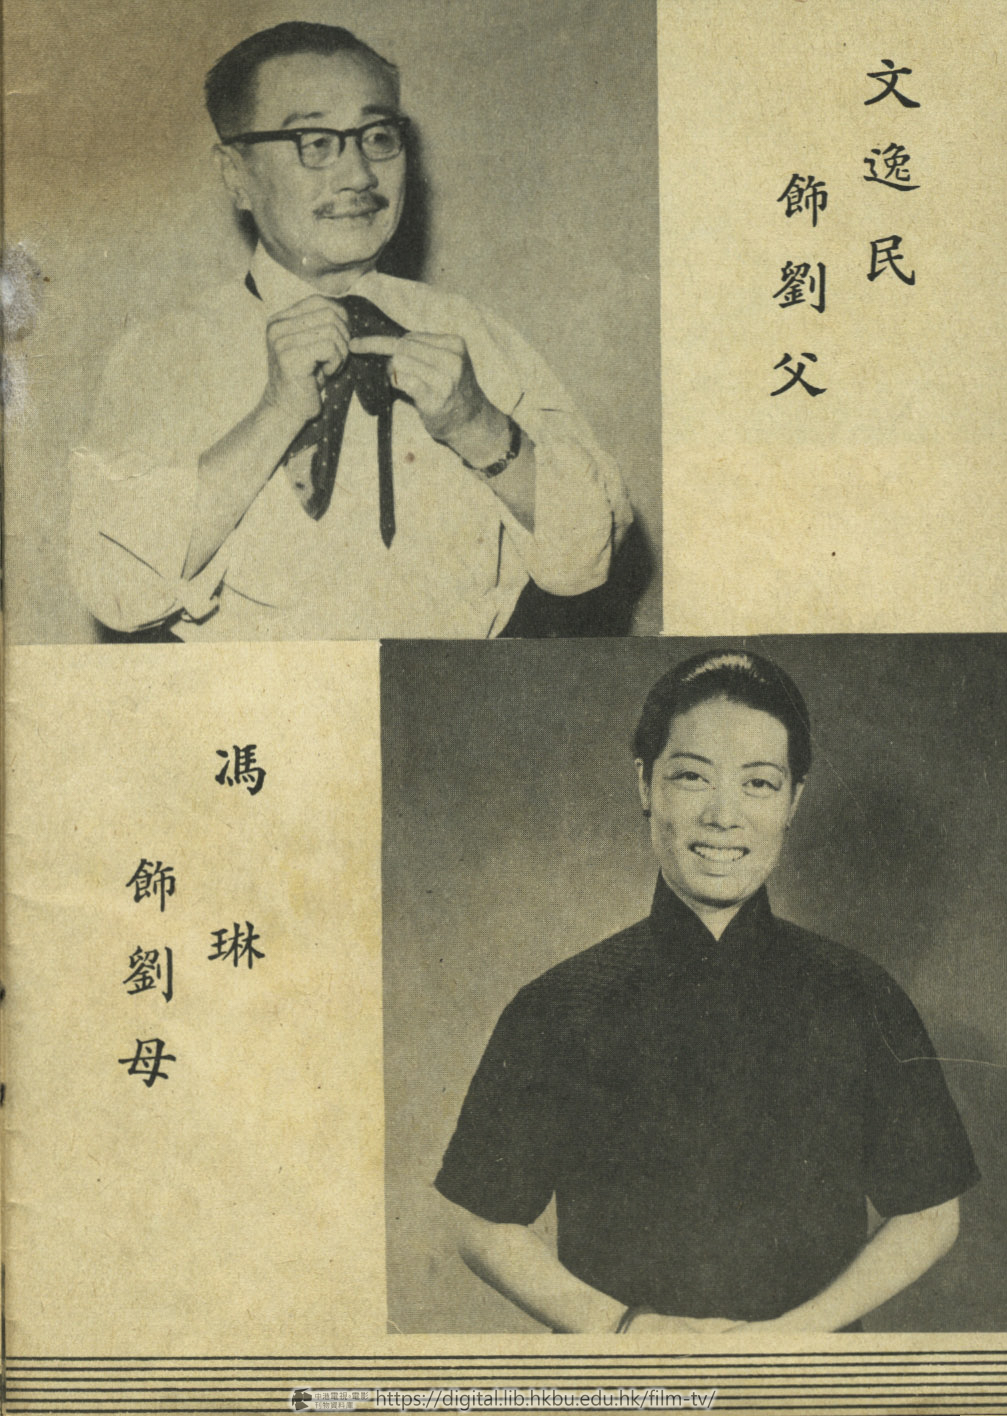 文逸民
飾劉父
馮琳
飾劉母
中港電視・電影
刊物資料庫
https://digital.lib.hkbu.edu.hk/film-tv/